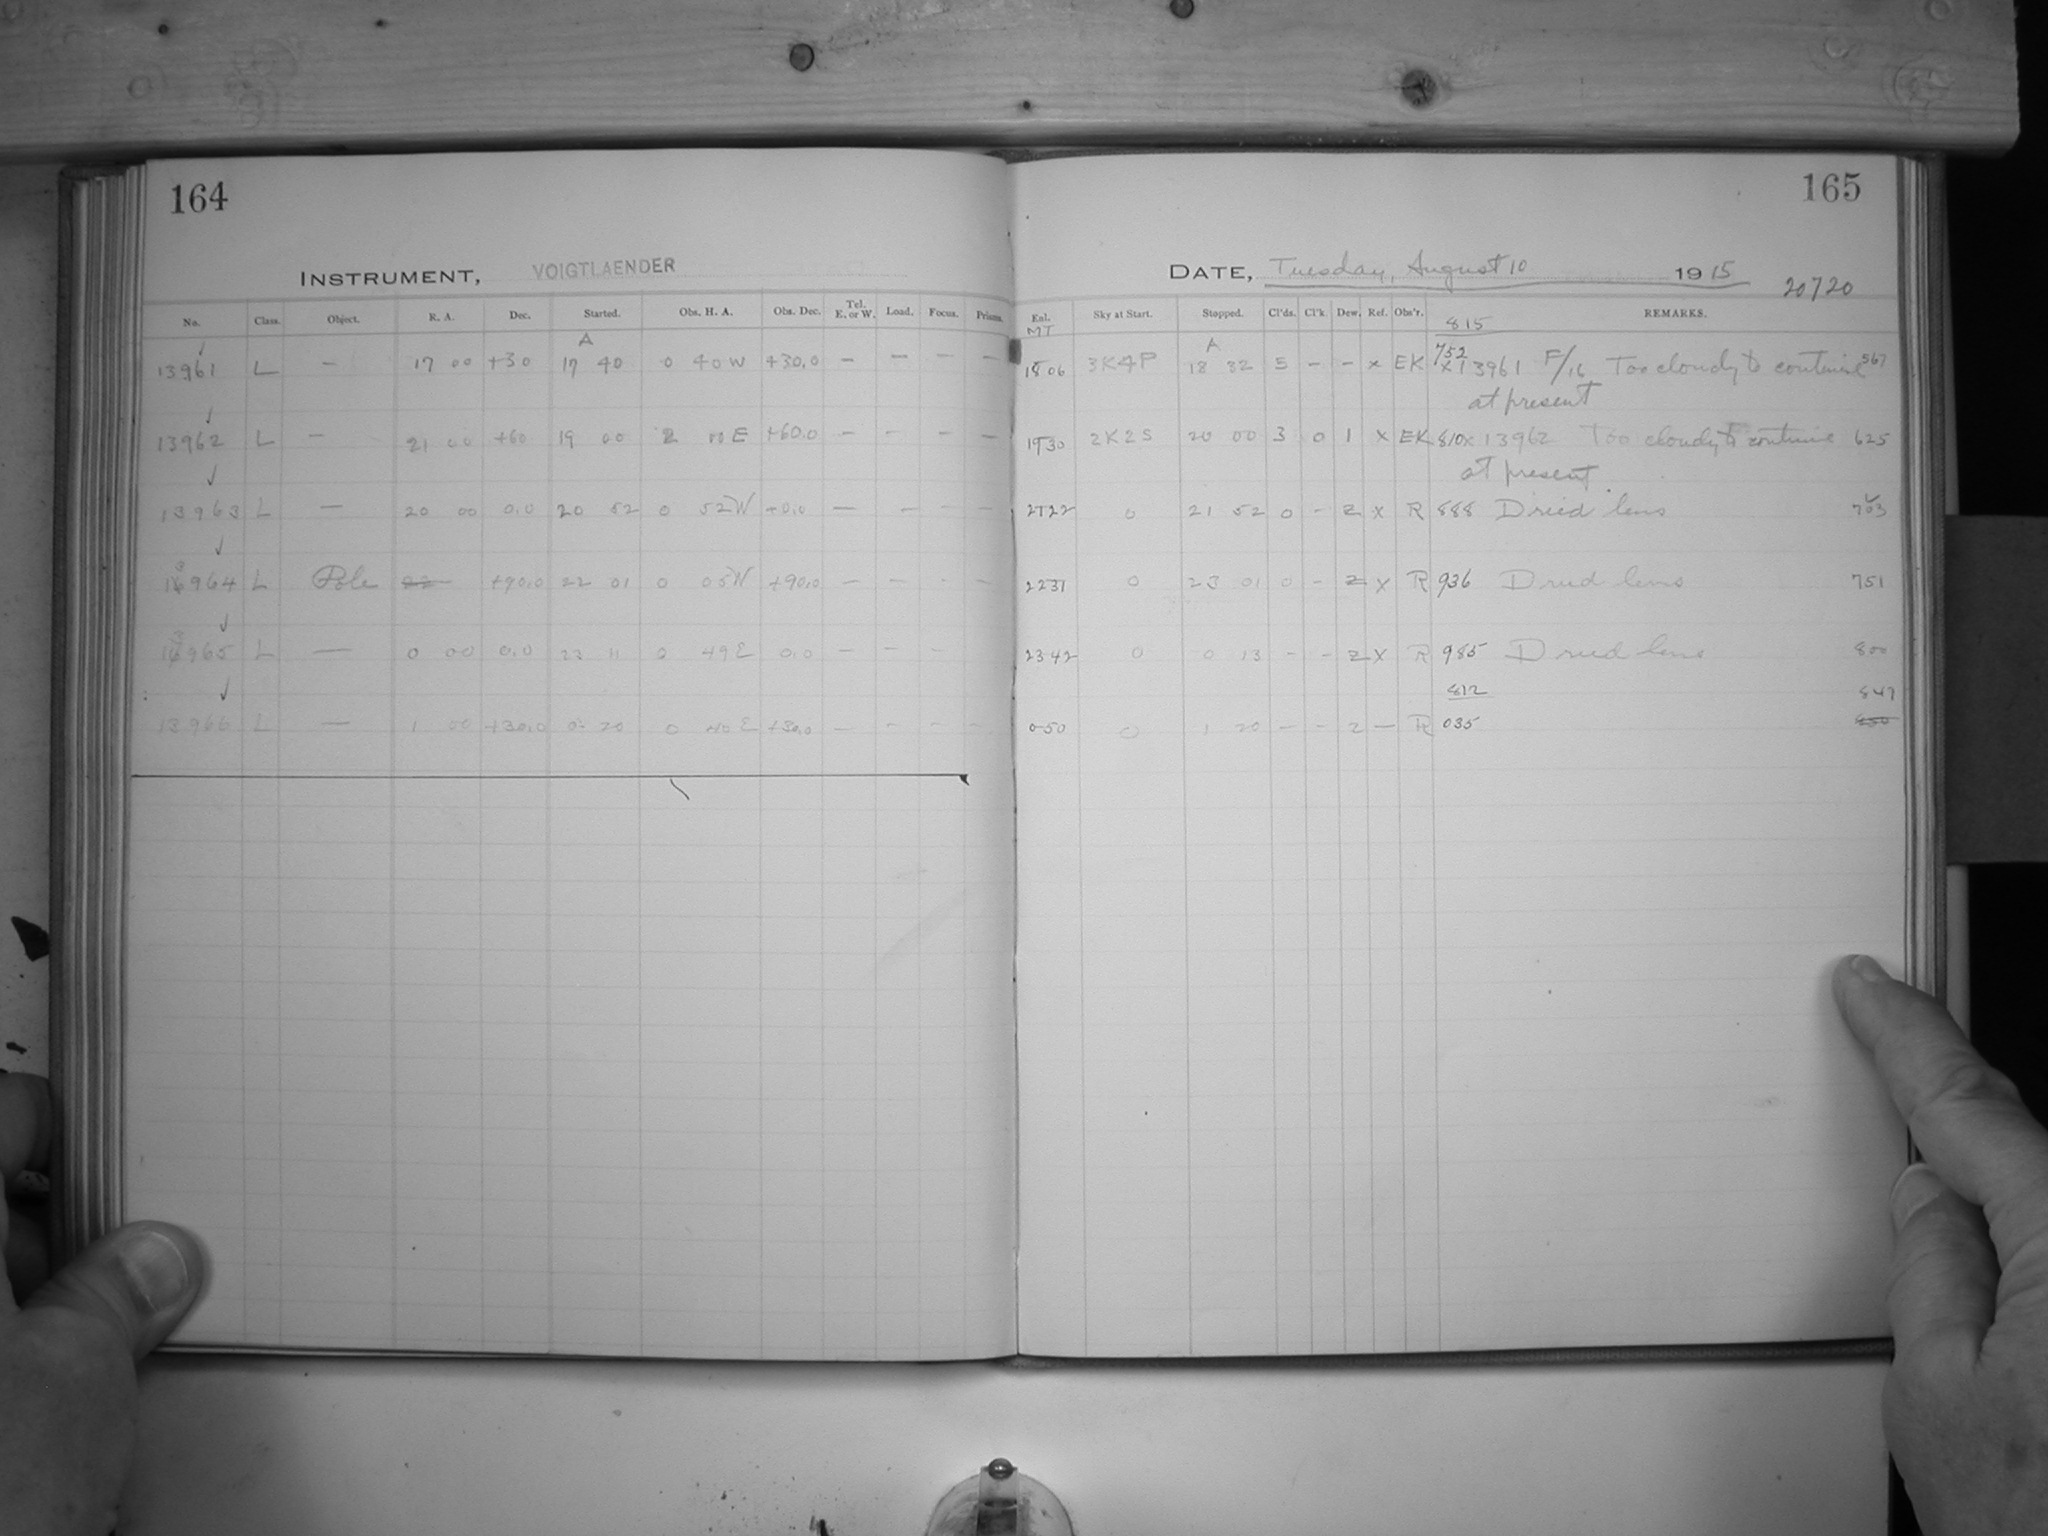 164
165
INSTRUMENT, VOIGTLAENDER
DATE, Tuesday, August 10 1915
20720
No. Class. Object. R. A. Dec. Started. Obs. H. A. Obs. Dec. Tel. E. or W. Load. Focus. Prisms.
Exl. Sky at Start. Stopped. Cl'ds. Cl'k. Dew. Ref. Obs'r. REMARKS.
MT 815
A A
13961 L — 17 00 +30 17 40 0 40 W +30.0 — — — — 1806 3K4P 18 32 5 — — x EK 752 x13961 F/16 Too cloudy to continue 567
at present
13962 L — 21 00 +60 19 00 2 00 E +60.0 — — — — 1930 2K2S 20 00 3 0 1 x EK 810x 13962 Too cloudy to continue 625
at present
13963 L — 20 00 0.0 20 52 0 52 W +0.0 — — — — 2122 0 21 52 0 - 2 x R 888 Dried lens 703
13964 L Pole +90.0 22 01 0 05 W +90.0 — — — — 2231 0 23 01 0 - 2 x R 936 Dried lens 751
13965 L — 0 00 0.0 23 11 0 49 E 0.0 — — — 2342 0 0 13 - - 2 x R 985 Dried lens 800
812 847
13966 L — 1 00 +30.0 0 20 0 40 E +30.0 — — — — 050 0 1 20 — — 2 — R 035